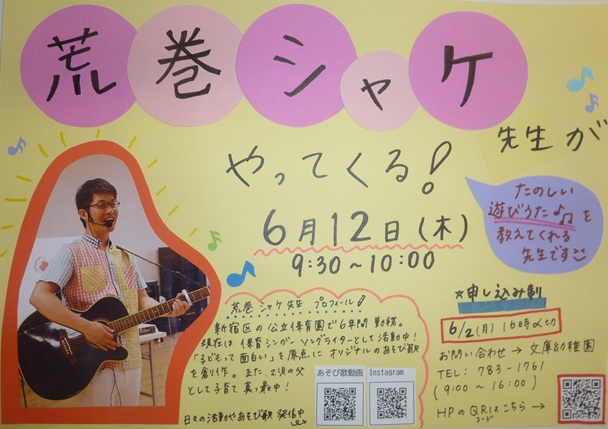 荒巻シャケ
先生が
やってくる!
6月12日(木)
9:30~10:00
たのしい
遊びうた♪♫を
教えてくれる
先生です
荒巻シャケ先生 プロフィール!
新宿区の公立保育園で6年間勤務。
現在は保育シンガーソングライターとして活動中!
「子どもって面白い」を原点にオリジナルのあそび歌
を創り作。また、2児の父
として子育て真っ最中!
日々の活動やあそび歌 発信中
あそび歌動画
Instagram
☆申し込み制
6/2(月)16時〆切
お問い合わせ→文庫幼稚園
TEL:783-1761
(9:00~16:00)
HPのQRはこちら→
コード